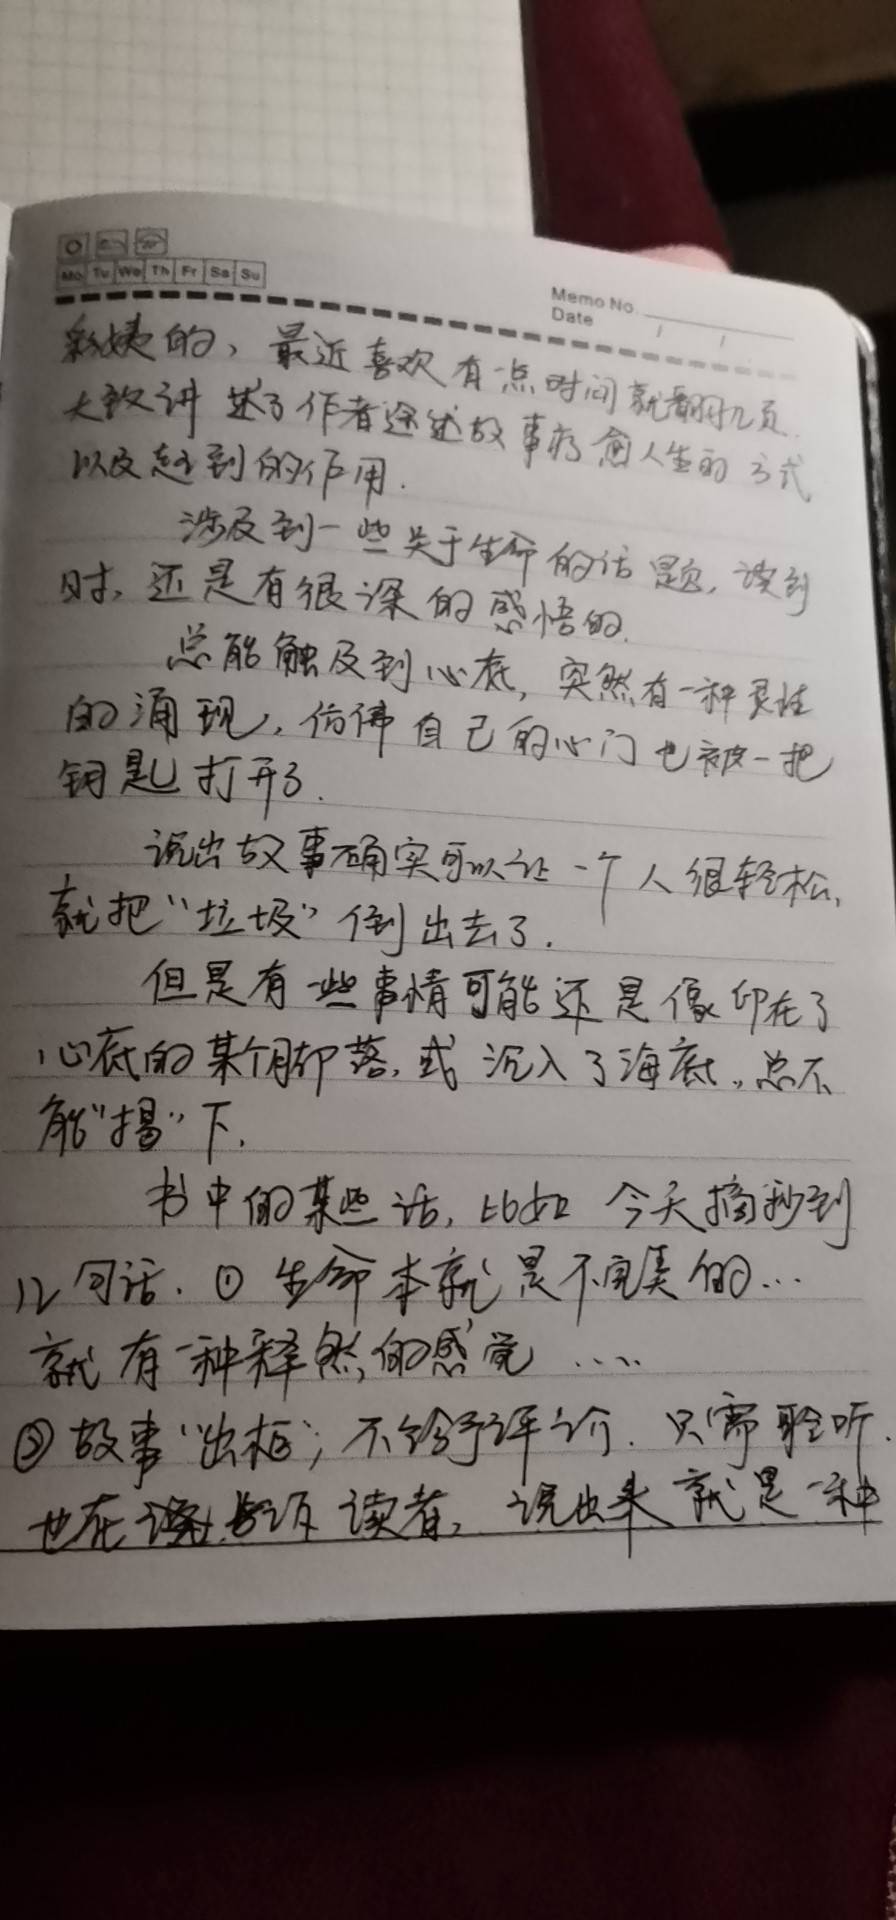 Mo Tu We Th Fr Sa Su
Memo No.
Date / /
彩姨的，最近喜欢有一点时间就翻几页.
大致讲述了作者途述故事疗愈人生的方式
以及起到的作用.
涉及到一些关于生命的话题，读到
时，还是有很深的感悟的.
总能触及到心底，突然有一种灵性
的涌现，仿佛自己的心门也被一把
钥匙打开了.
说出故事确实可以让一个人很轻松，
就把“垃圾”倒出去了.
但是有一些事情可能还是像印在了
心底的某个部落，或沉入了海底，总不
能“揭”下.
书中的某些话，比如今天摘抄到
几句话.① 生命本就是不完美的...
就有一种释然的感觉.....
② 故事“出柜”，不给予评价.只需聆听.
也在读者，说出来就是一种